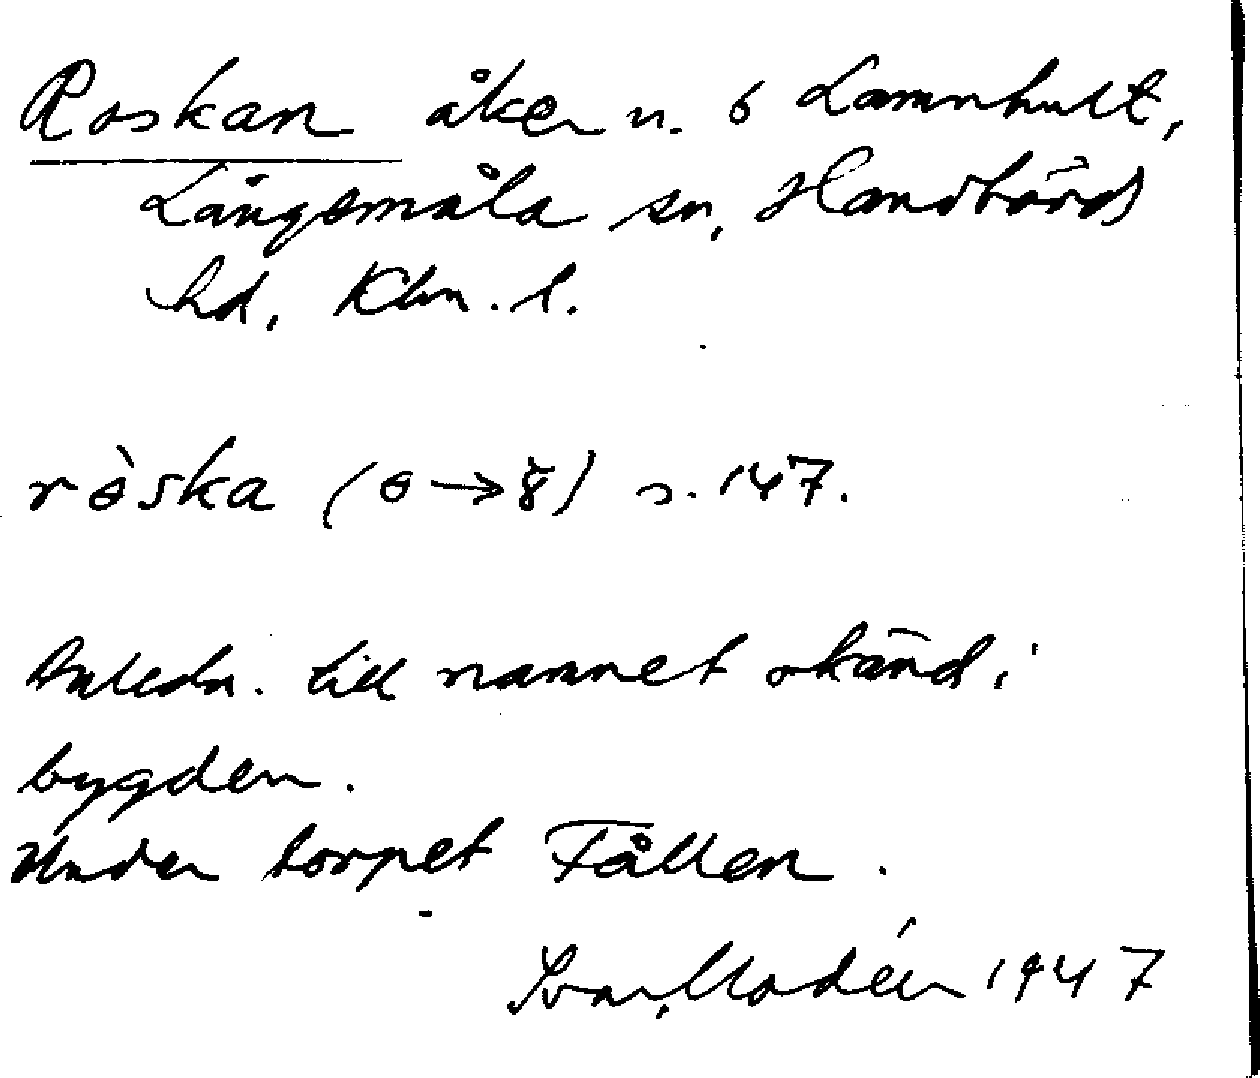 Roskan åker u. 6 Lammhult,
Långemåla sn, Handbörds
hd, Klm. l.
rɵ̀ska (ɵ → ɤ̆) s. 147.
Anledn. till namnet okänd i
bygden.
Under torpet Fållen.
Ivar Modéer 1947